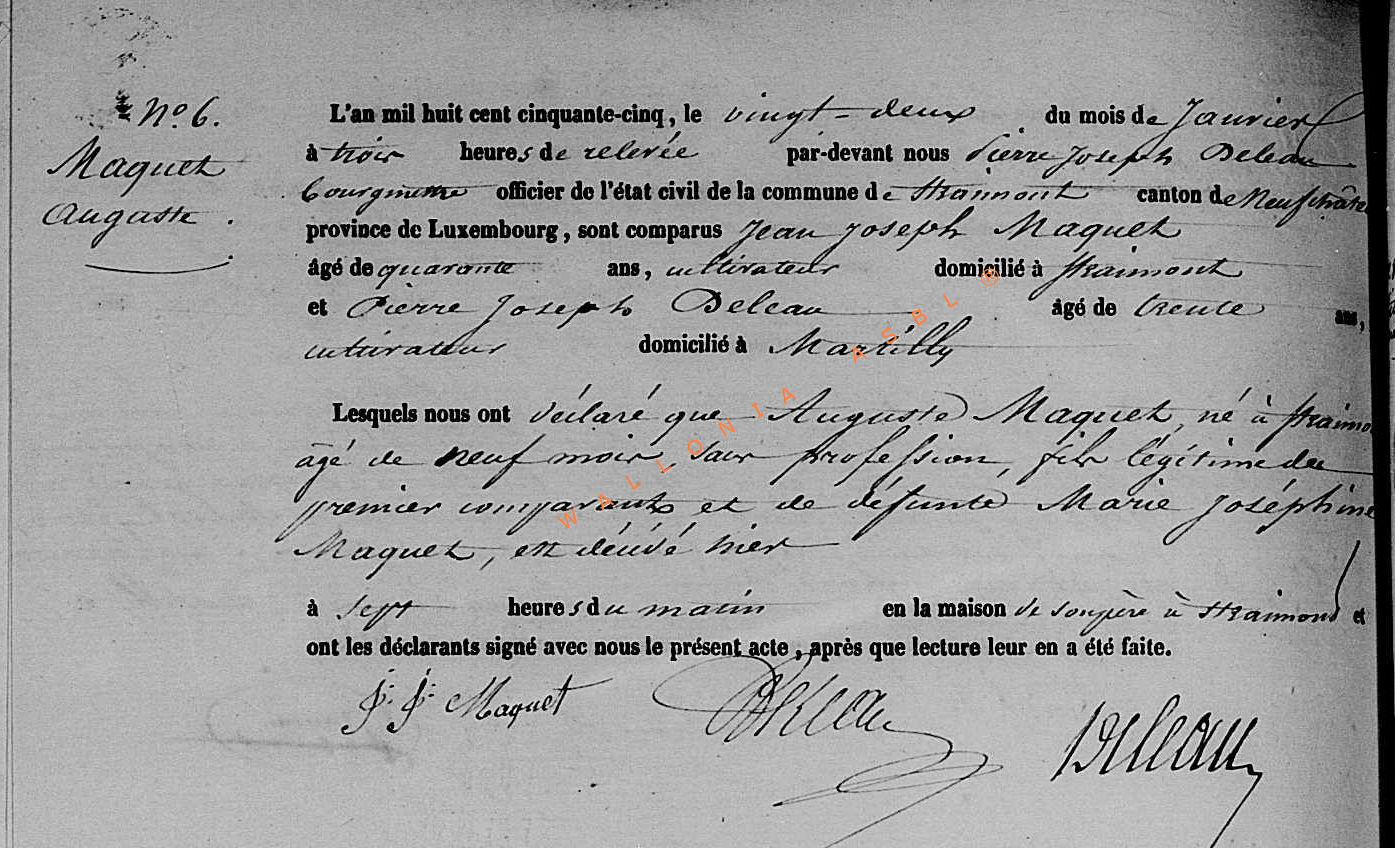 No. 6.
Maquet
Auguste.
L'an mil huit cent cinquante-cinq, le vingt-deux du mois de Janvier
à trois heures de relevée par-devant nous Pierre Joseph Deleau
bourgmestre officier de l'état civil de la commune de Straimont canton de Neufchâte
province de Luxembourg, sont comparus Jean Joseph Maquet
âgé de quarante ans, cultivateur domicilié à Straimont
et Pierre Joseph Deleau âgé de trente ans,
cultivateur domicilié à Martilly
Lesquels nous ont déclaré que Auguste Maquet, né à Straimo
âgé de neuf mois, sans profession, fils légitime du
premier comparant et de défunte Marie Joséphine
Maquet, est décédé hier
à sept heures du matin en la maison de son père à Straimont et
ont les déclarants signé avec nous le présent acte, après que lecture leur en a été faite.
J. J. Maquet Deleau Deleau
WALLONIA ASBL ®